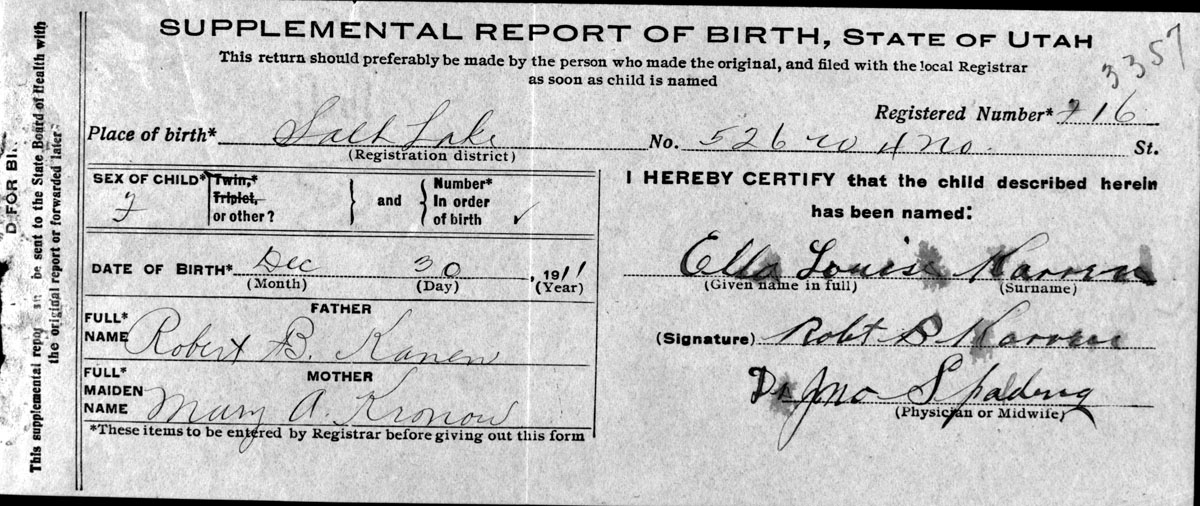 SUPPLEMENTAL REPORT OF BIRTH, STATE OF UTAH
This return should preferably be made by the person who made the original, and filed with the local Registrar
as soon as child is named
3357
Registered Number* 716
Place of birth* Salt Lake No. 526 W 4 No. St.
(Registration district)
SEX OF CHILD* F
Twin,*
Triplet,
or other?
and
Number*
In order
of birth ✓
DATE OF BIRTH* Dec 30, 1911
(Month) (Day) (Year)
FATHER
FULL*
NAME Robert B. Karren
MOTHER
FULL*
MAIDEN
NAME Mary A. Kronow
*These items to be entered by Registrar before giving out this form
I HEREBY CERTIFY that the child described herein
has been named:
Ella Louise Karren
(Given name in full) (Surname)
(Signature) Robt B Karren
Dr Jno Spalding
(Physician or Midwife)
D FOR BI
This supplemental report be sent to the State Board of Health with
the original report or forwarded later